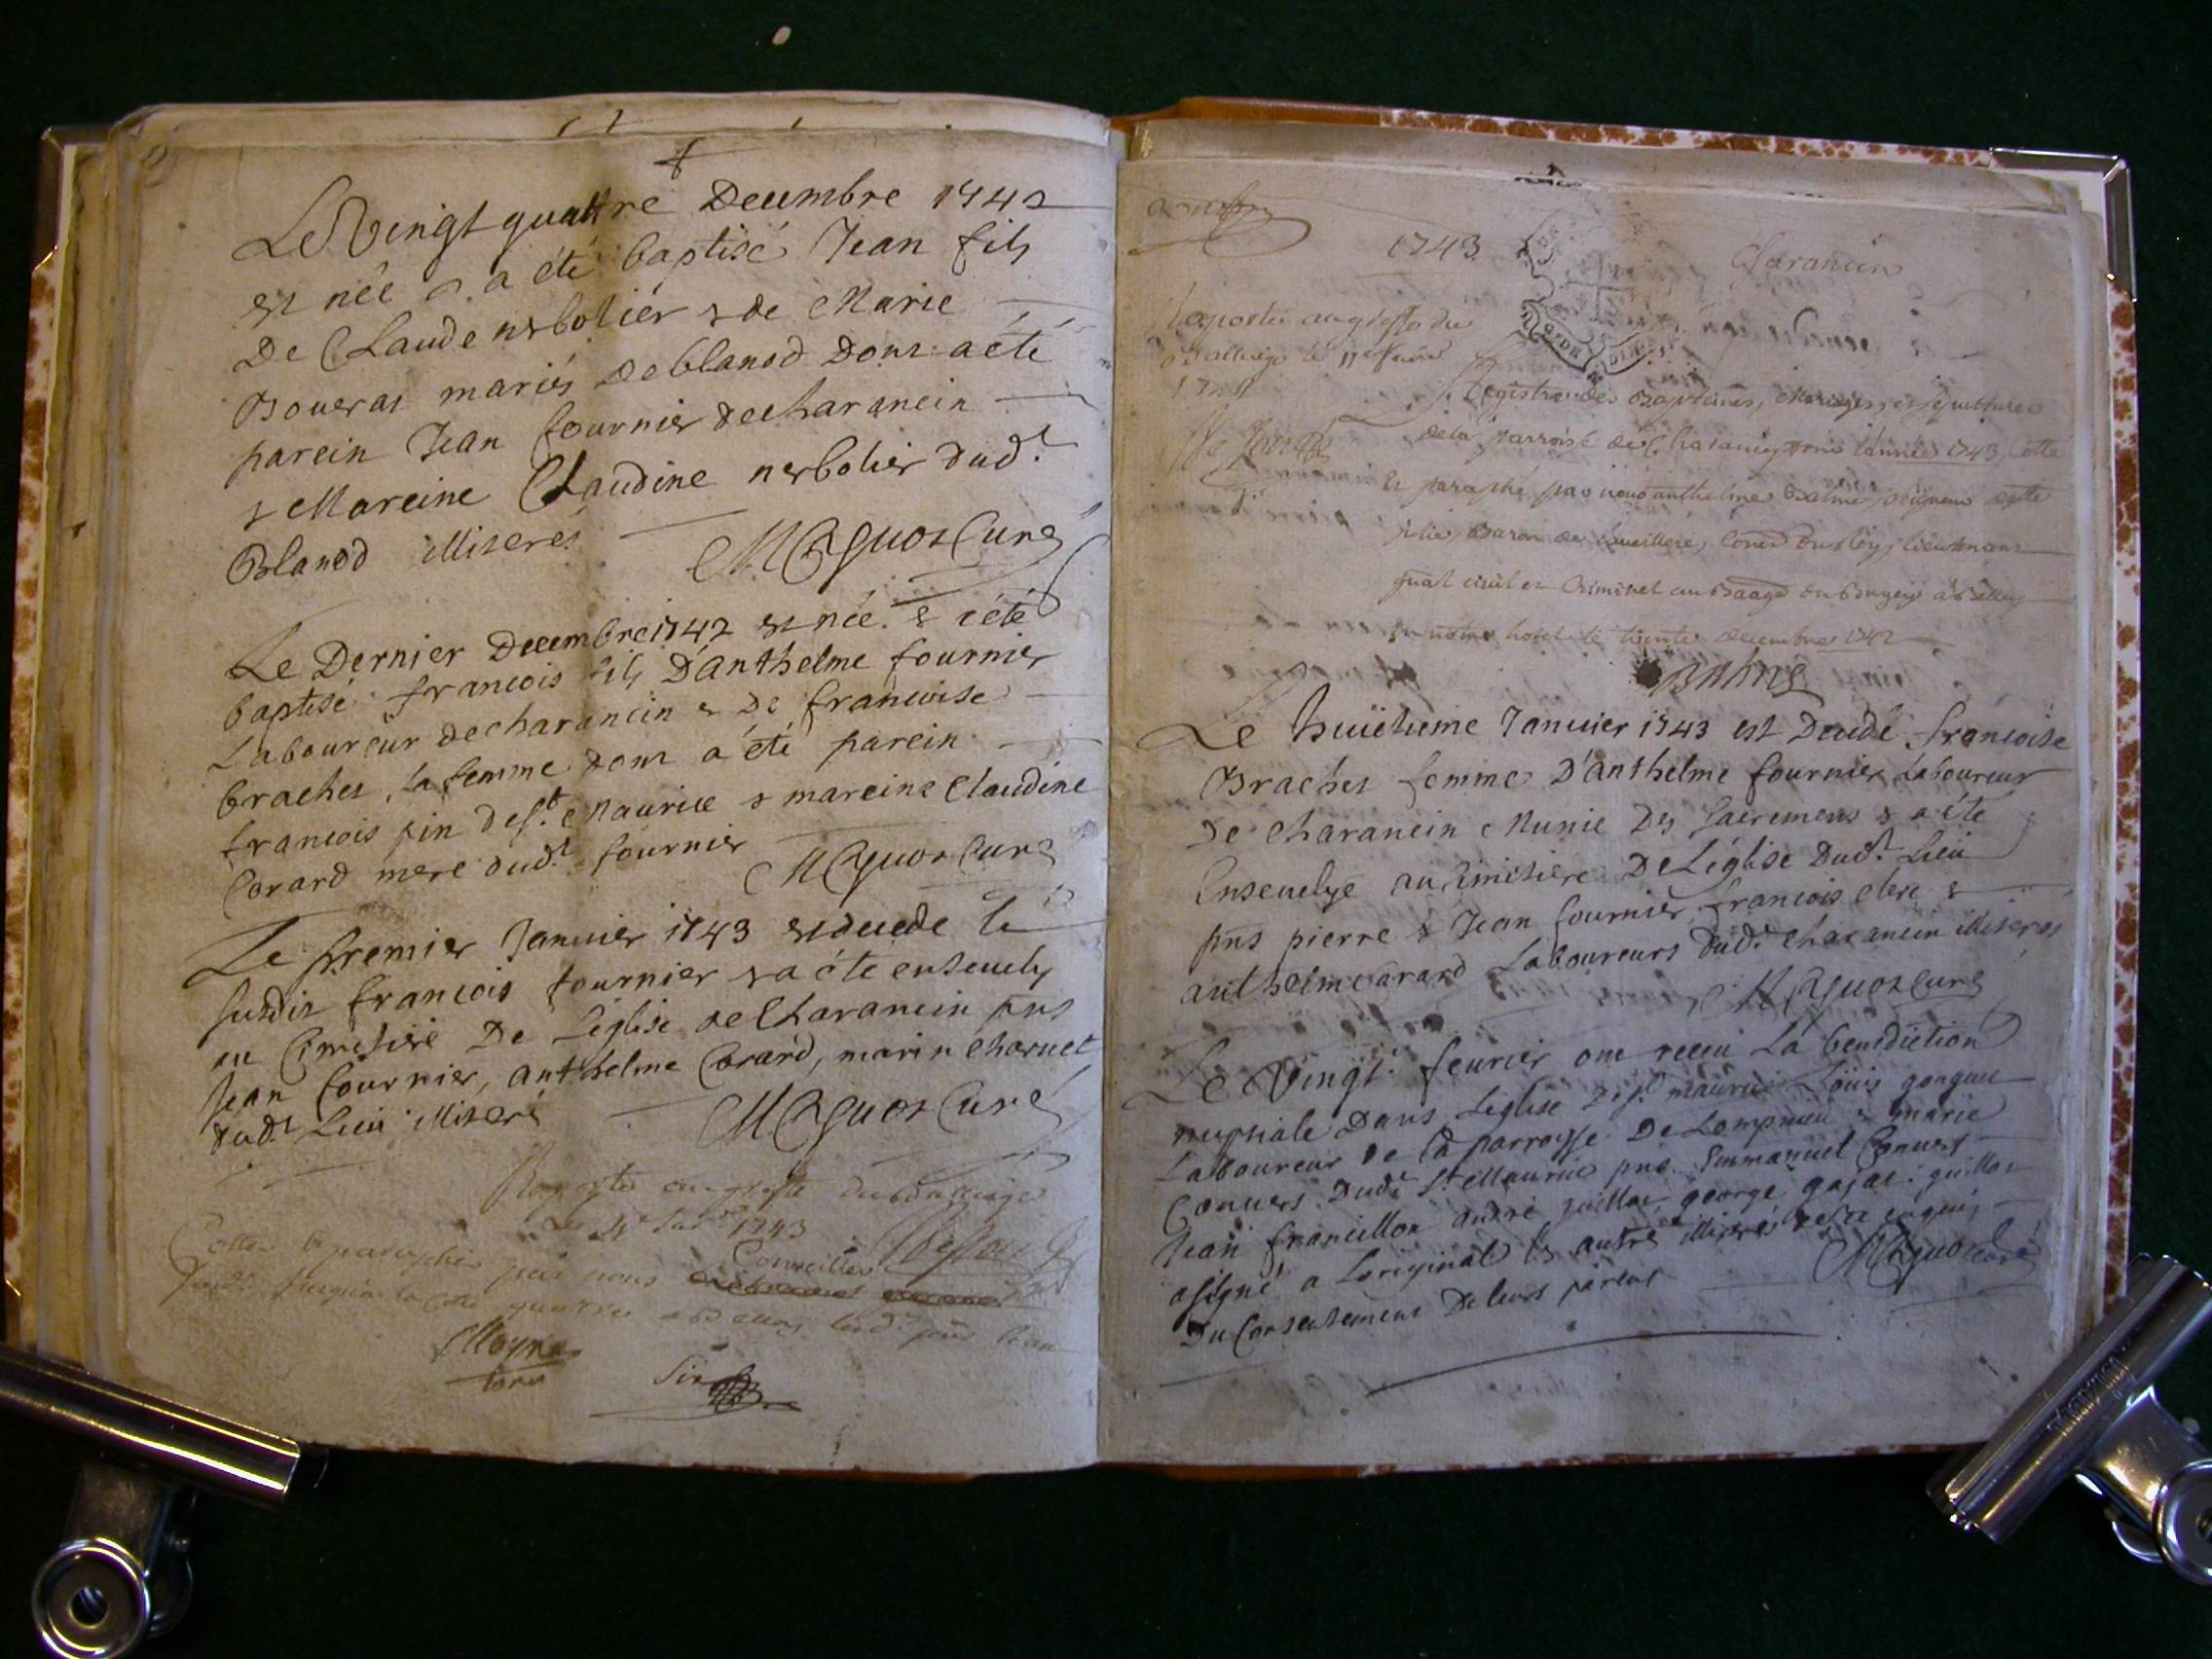 Le Vingt quattre Decembre 1742
est née & a été baptisé Jean fils
De Claude nerbolier & de Marie
Boueras mariés de blanod Dont a été
parein Jean fournier de charancin
& Mareine Claudine nerbolier dud.t
Blanod illiterés
Curé
Le Dernier Decembre 1742 est née & a été
baptisé francois fils D'anthelme fournier
Laboureur de charancin & De francoise
brachet sa femme dont a été parein
francois pin de s.t Maurice & mareine Claudine
Corard mere dud.t fournier
Curé
Le premier Janvier 1743 est decede le
susdit francois fournier & a été ensevely
au Cimetiere De L'église de Charancin pns
Jean fournier, anthelme Corard, marin charvet
dud.t Lieu illiteré
Curé
Raporté au greffe du Balliage
Le 1743
Cotté & paraphé par nous Conseiller
1743
Charancin
Raporté au greffe du
Balliage le
Registre des Baptêmes, Mariages, et sepultures
de la parroise de Charancin pour l'année 1743, Cotté
Et paraphé par nous anthelme Balme seigneur de ste
julie, Baron de lieutenant
gnal civil et Criminel au Baage du Bugey à Belley
en notre hotel le trente decembre 1742
Balme
Le huitieme Janvier 1743 est Decede francoise
Brachet femme D'anthelme fournier Laboureur
De charancin Munie Des sacremens & a été
Ensevelye au Cimetiere De L'église Dud.t Lieu
pns pierre & Jean fournier francois clerc &
anthelme Laboureurs dud.t charancin illiterés
Curé
Le Vingt fevrier ont receu La benediction
nuptiale Dans L'eglise De s.t maurice Loüis
Laboureur De la parroysse De Lompnieu & marie
Convers Dud.t S.t Maurice pns Emmanuel Convers
Jean francillon andré guillot george guillot
a signé a Loriginal les autre illiterés
Du Consentement De leurs parens
Curé